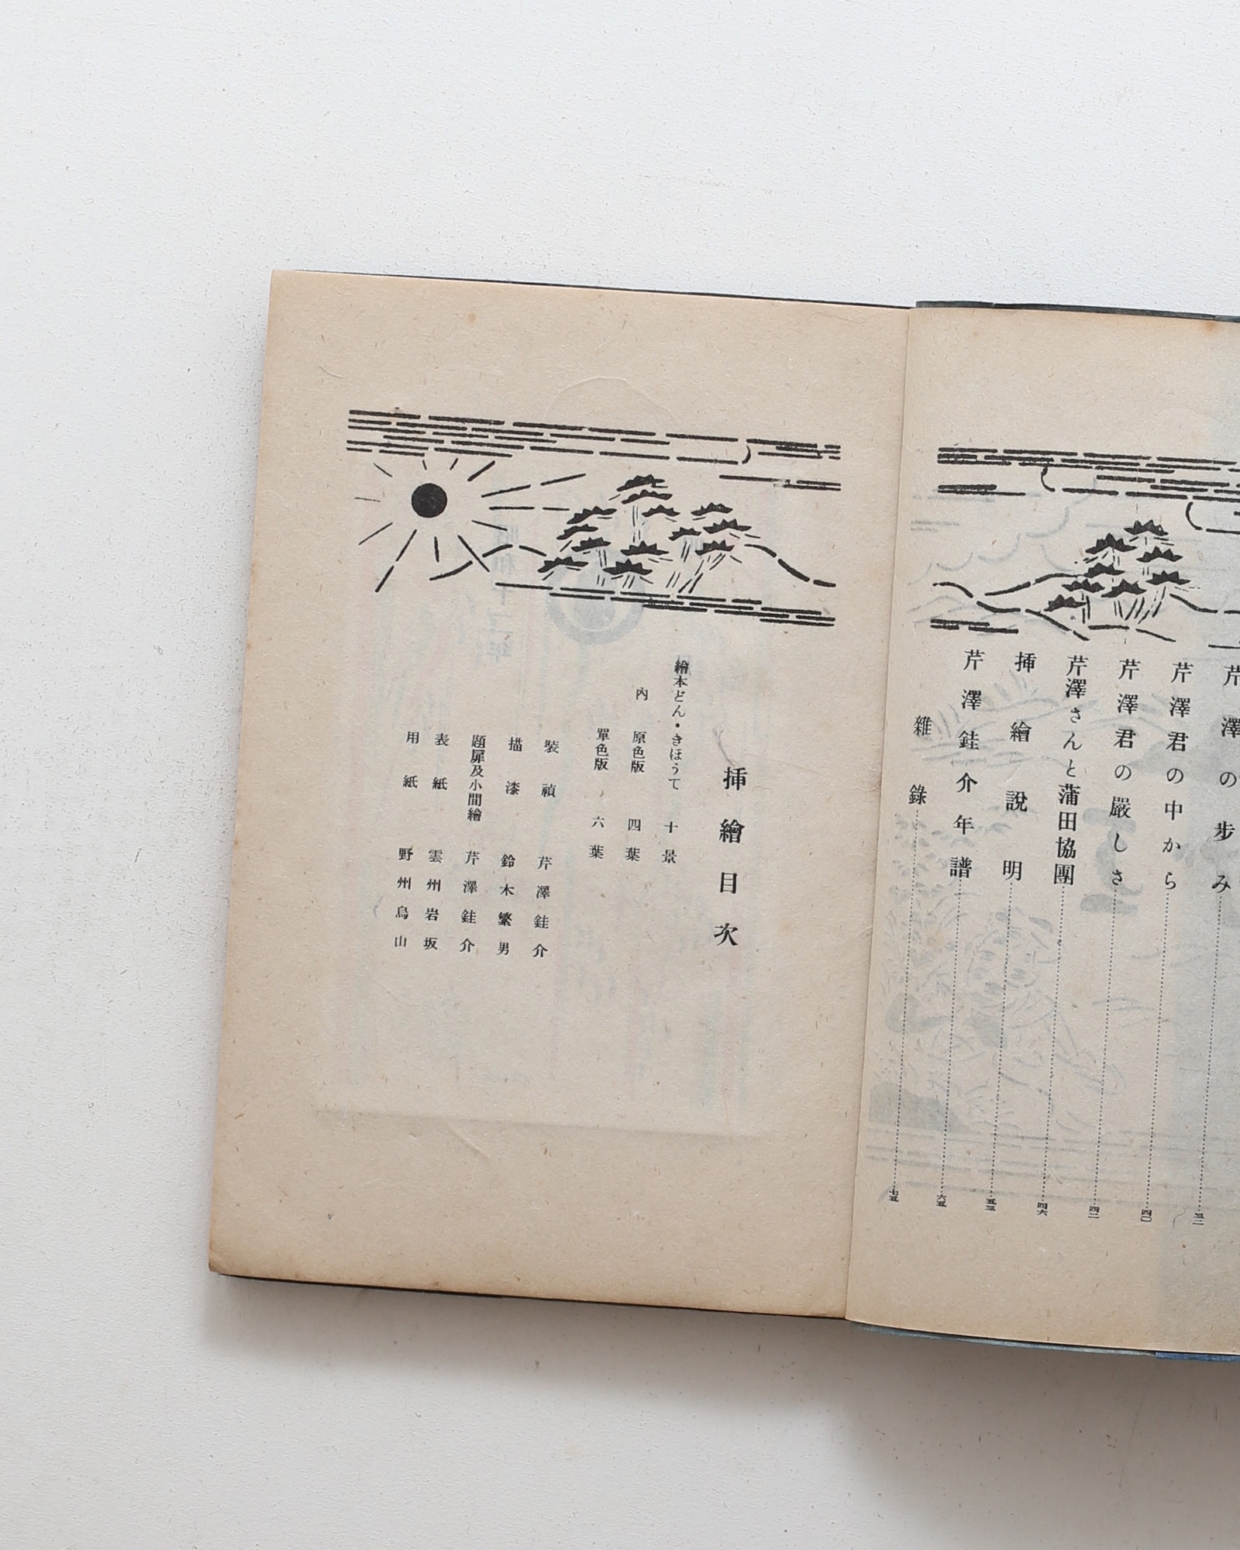 芹澤の歩み……三二
芹澤君の中から……四〇
芹澤君の嚴しさ……四二
芹澤さんと蒲田協團……四六
挿繪說明……五五
芹澤銈介年譜……六五
雜錄……七五
挿繪目次
繪本どん・きほうて 十景
內 原色版 四葉
單色版 六葉
裝禎 芹澤銈介
描漆 鈴木繁男
題扉及小間繪 芹澤銈介
表紙 雲州岩坂
用紙 野州烏山